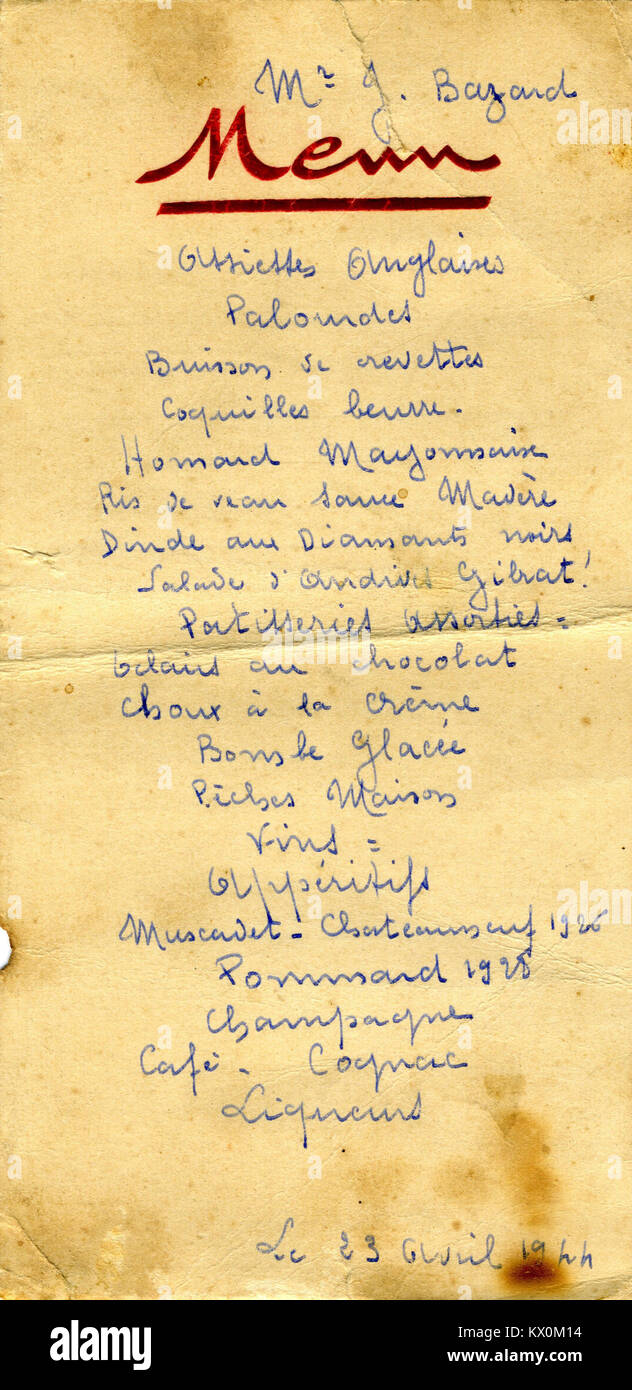 Mr J. Bazard
Menu
Assiettes Anglaises
Palourdes
Buisson de crevettes
Coquilles beurre.
Homard Mayonnaise
Ris de veau Sauce Madère
Dinde aux Diamants noirs
Salade d'Andives Gibrat!
Patisseries Assorties =
Eclairs au chocolat
Choux à la Crème
Bombe Glacée
Pêches Maison
Vins =
Appéritifs
Muscadet - Chateauneuf 1926
Pommard 1928
Champagne
Café - Cognac
Liqueurs
Le 23 Avril 1944
alamy
Image ID: KX0M14
www.alamy.com